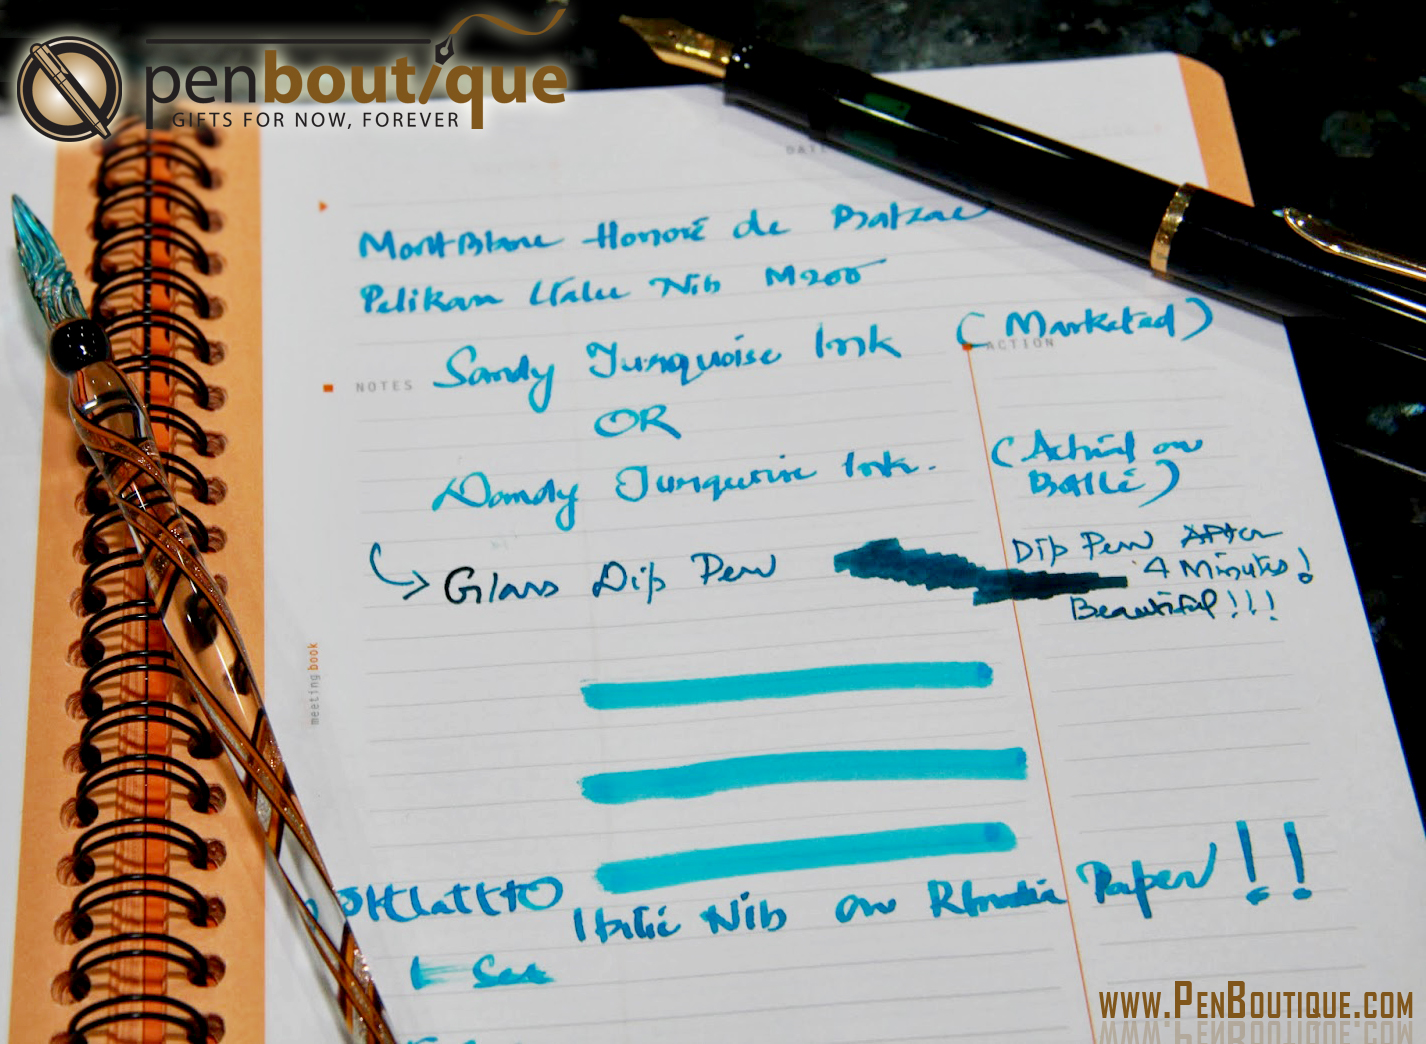 penboutique
GIFTS FOR NOW, FOREVER
DATE
MontBlanc Honoré de Balzac
Pelikan Italic Nib M200
Sandy Turquoise Ink (Marketed)
ACTION
NOTES
OR
Dandy Turquoise Ink. (Actual on
Bottle)
Glass Dip Pen
Dip Pen After
4 Minutes!
Beautiful!!!
meetingbook
Italic Nib on Rhodia Paper!!
www.PenBoutique.com